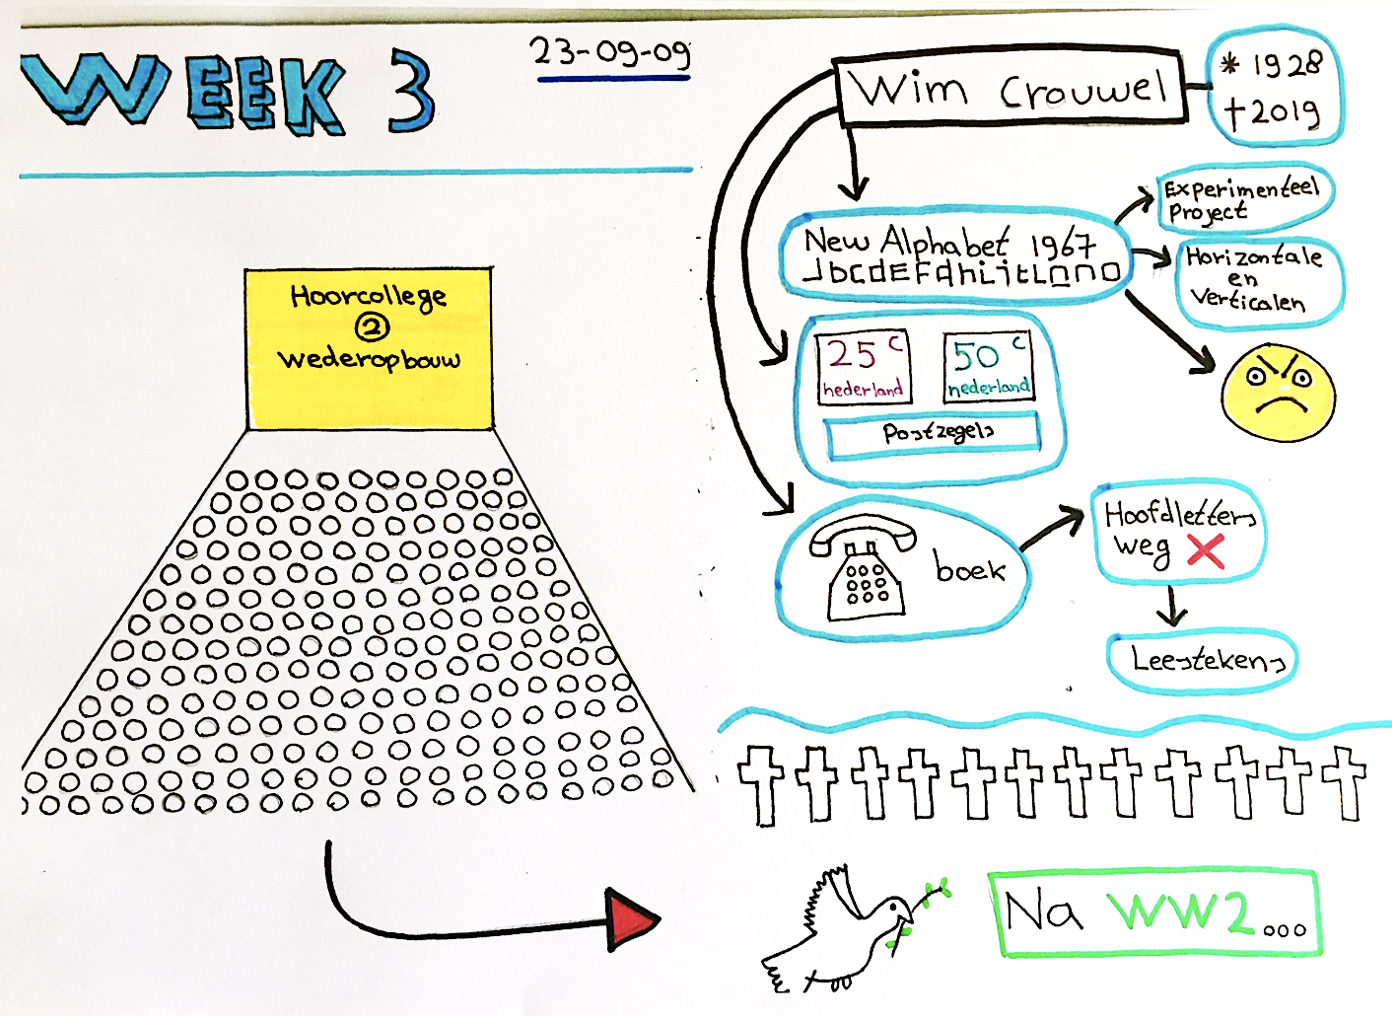 WEEK 3
23-09-09
Hoorcollege
2
Wederopbouw
Wim Crouwel
* 1928
† 2019
New Alphabet 1967
Experimenteel
Project
Horizontale
en
Verticalen
25 c
nederland
50 c
nederland
Postzegels
boek
Hoofdletters
weg X
Leestekens
Na WW2...